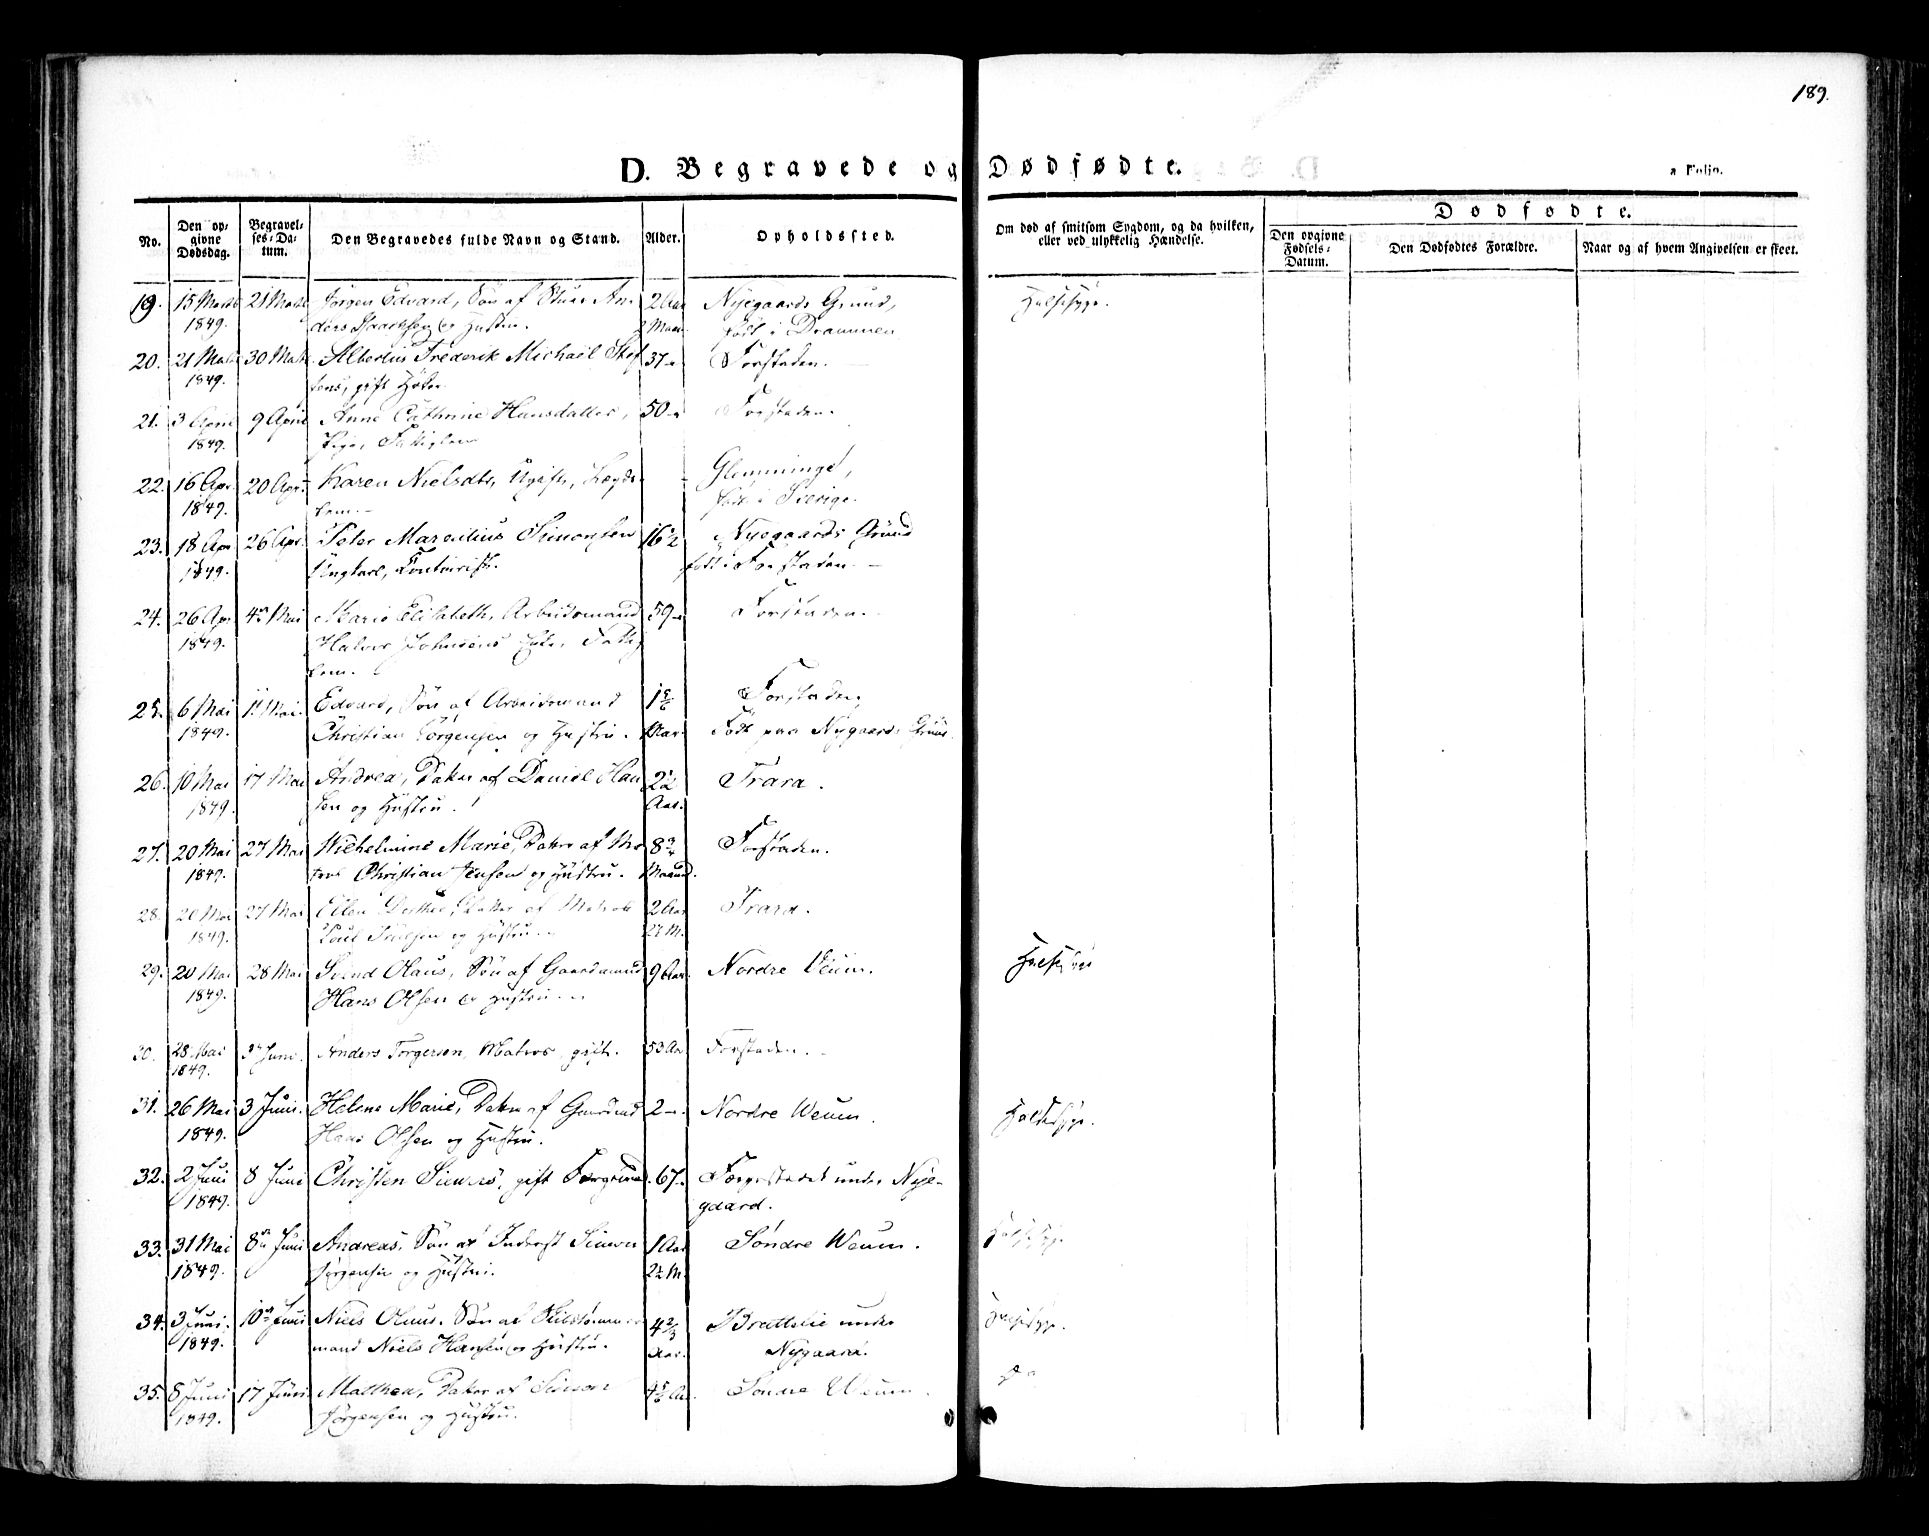 189.
D. Begravede og Dødfødte.
a Folio.
No.
Den opgivne Dødsdag.
Begravelses-Datum.
Den Begravedes fulde Navn og Stand.
Alder.
Opholdssted.
Om død af smitsom Sygdom, og da hvilken, eller ved ulykkelig Hændelse.
Dødfødte.
Den opgivne Fødsels-Datum.
Den Dødfødtes Forældre.
Naar og af hvem Angivelsen er skeet.
19. 15 Marts 21 Marts Jørgen Edvard, Søn af An- 2 Aar Nyegaards Grund, Halssyge.
1849. ders og Hustru. 2 Maan født i Drammen
20. 21 Marts 30 Marts Albertus Frederik Michaël Stef 37 Forstaden.
1849. fens, gift Høker
21. 3 April 9 April Anne Cathrine Hansdatter, 50 Forstaden.
1849. Pige, Fattiglem
22. 16 Apr. 20 Apr. Karen Nielsdtr, Ugift, Lægds- Glemminge,
1849. lem. født i Sverige.
23. 18 Apr 26 Apr. Peter Marcilius Simonsen 16½ Nyegaards Grund
1849. Ungkarl, Contorist. født i Forstaden.
24. 26 Apr 4de Mai Marie Elisabeth, Arbeidsmand 59 Forstaden.
1849. Halvor Johnsens Enke, Fattig
lem.
25. 6 Mai 11 Mai. Edvard, Søn af Arbeidsmand 1 5/6 Forstaden,
1849. Christian Jørgensen og Hustru. Aar. Født paa Nygaards Grund.
26. 10 Mai 17 Mai Andrea, Datter af Daniel Han 2½ Trara.
1849. sen og Hustru. Aar.
27. 20 Mai 27 Mai Wilhelmine Marie, Datter af Ma 8¾ Forstaden.
1849. tros Christian Jensen og Hustru. Maaned.
28. 20 Mai 27 Mai Ellen Dorthea, Datter af Matros 2 Aar Trara.
1849. Poul og Hustru. 2½ M.
29. 20 Mai 28 Mai Svend Olaus, Søn af Gaardmand 9 Aar. Nordre Veum. Halssyge
1849. Hans Olsen og Hustru.
30. 28 Mai 3 Juni. Anders Torgersen, Matros, gift. 53 Aar Forstaden.
1849.
31. 26 Mai 3 Juni. Helene Marie, Datter af Gaardmd 2 Nordre Weum. Halssyge.
1849. Hans Olsen og Hustru.
32. 2 Juni 8 Juni Christen Siewers, gift Færgemand. 67 Færgestedet under Nye-
1849. gaard.
33. 31 Mai 8de Juni Andreas, Søn af Inderst Simon 1 Aar Søndre Weum. Halssyge.
1849. Jørgensen og Hustru. 2½ M.
34. 3 Juni. 10de Juni Niels Olaus, Søn af 4⅔ Brattelie under Halssyge.
1849. mand Niels Hansen og Hustru. Aar. Nygaard.
35. 8 Juni 17 Juni Mathea, Datter af Simon Aar Søndre Weum. do
1849. Jørgensen og Hustru.